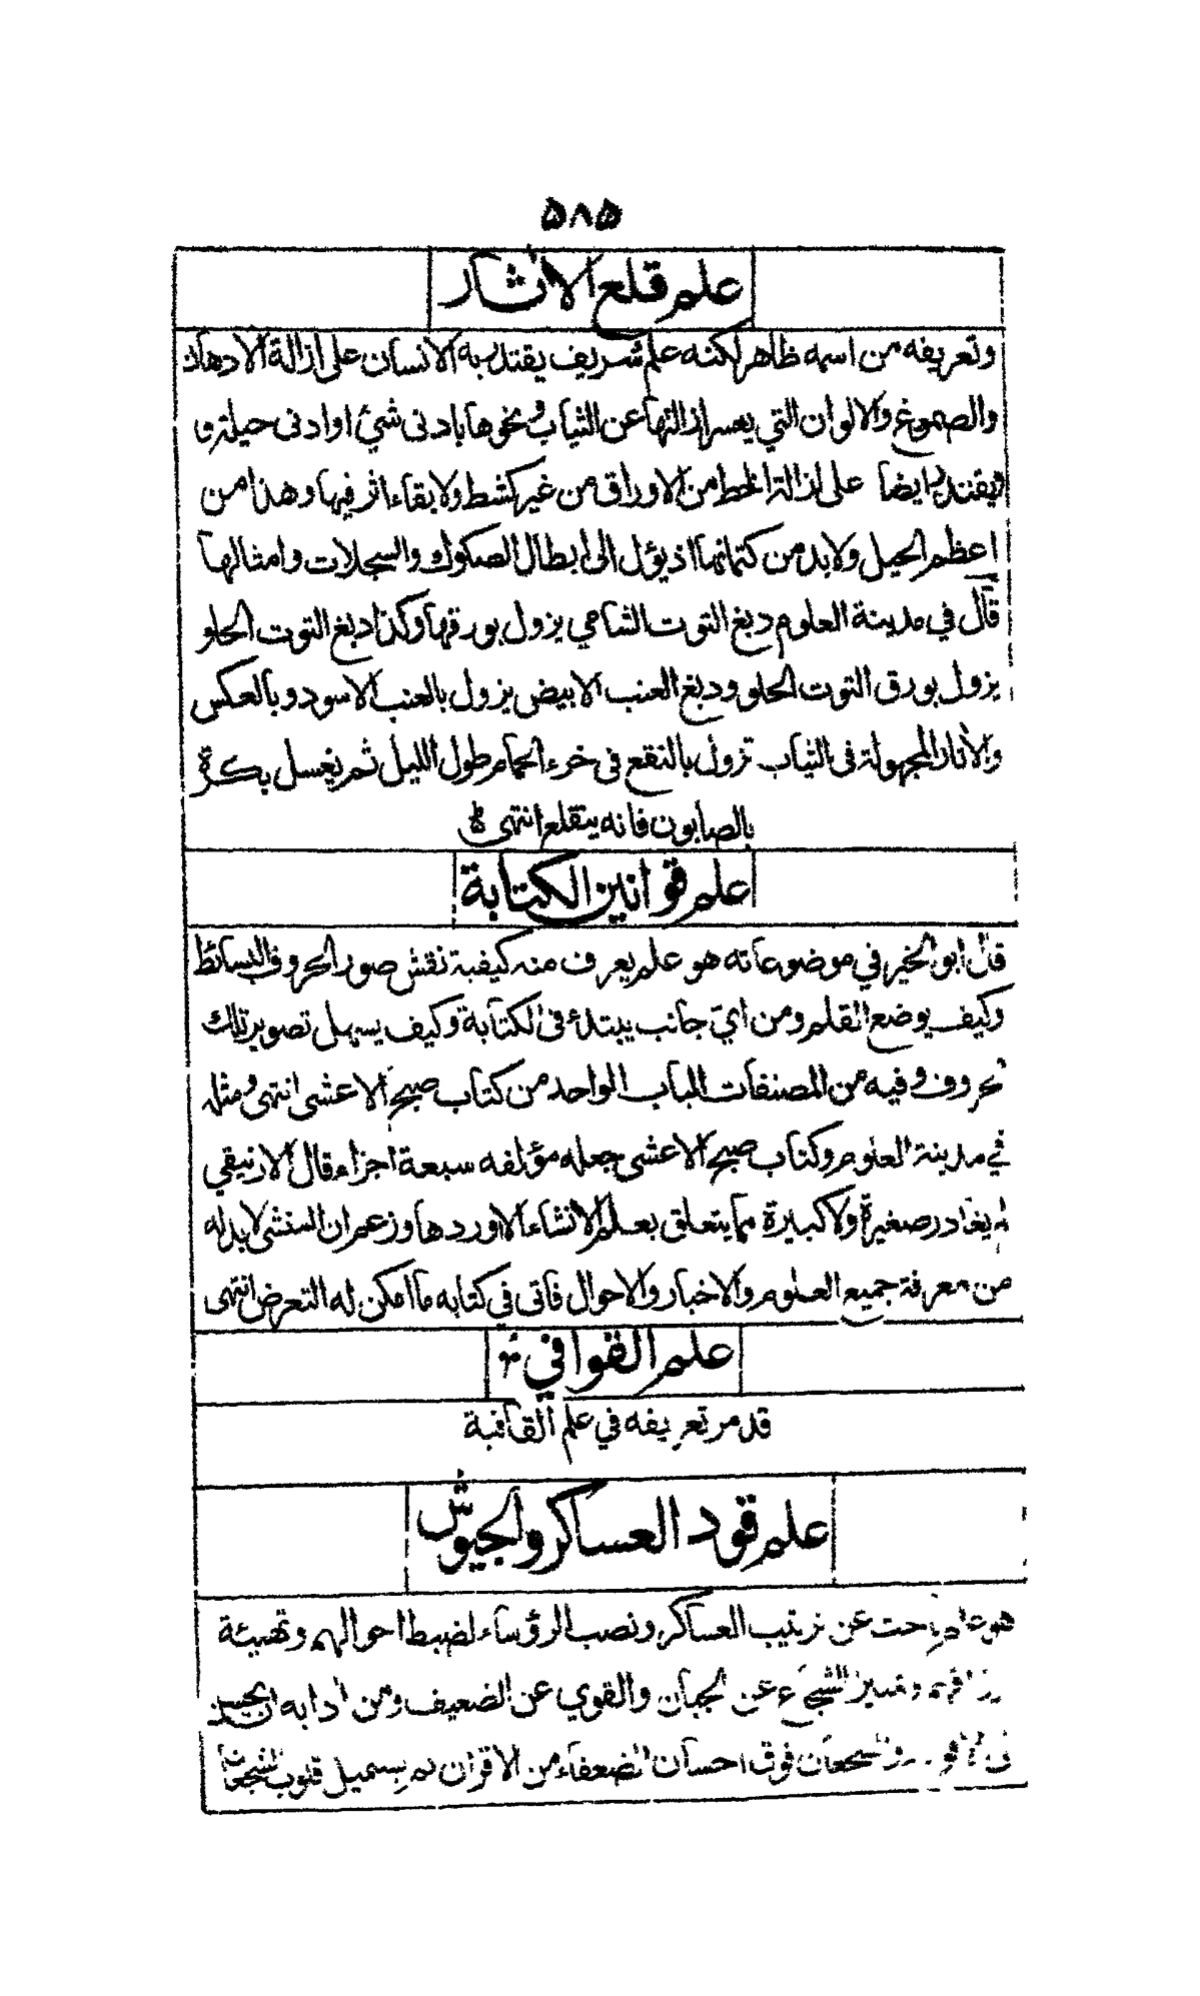 ۵۸۵
علم قلع الاثار
وتعريفه من اسمه ظاهر لكنه علم شريف يقتدر به الانسان على ازالة الادهان
والصموغ والالوان التي يعسر ازالتها عن الثياب ونحوها بادنى شئ او ادنى حيلة و
يقتدر ايضا على ازالة الخط من الاوراق من غير كشط ولا بقاء اثر فيها وهذا من
اعظم الحيل ولابد من كتمانها اذ يؤل الى ابطال الصكوك والسجلات وامثالها
قال في مدينة العلوم دبغ التوت الشامي يزول بورقها وكذا دبغ التوت الحلو
يزول بورق التوت الحلو ودبغ العنب الابيض يزول بالعنب الاسود وبالعكس
والأثار المجهولة فى الثياب تزول بالنقع فى خرء الحمام طول الليل ثم يغسل بكرة
بالصابون فانه ينقلع انتهى
علم قوانين الكتابة
قال ابو الخير في موضوعاته هو علم يعرف منه كيفية نقش صور الحروف البسائط
وكيف يوضع القلم ومن اي جانب يبتدئ فى الكتابة وكيف يسهل تصوير تلك
الحروف وفيه من المصنفات الباب الواحد من كتاب صبح الاعشى انتهى ومثله
في مدينة العلوم وكتاب صبح الاعشى جعله مؤلفه سبعة اجزاء قال الارنيقي
لم يغادر صغيرة ولا كبيرة مما يتعلق بعلم الانشاء الا اوردها وزعم ان المنشى لابد له
من معرفة جميع العلوم والاخبار والاحوال فاتى في كتابه ما امكن له التعرض انتهى
علم القوافي
قد مر تعريفه في علم القافية
علم قود العساكر والجيوش
هو علم باحث عن ترتيب العساكر ونصب الرؤساء لضبط احوالهم وتهيئة
ارزاقهم وتمييز الشجاع عن الجبان والقوي عن الضعيف ومن ادابه ان يحسن
فوق احسان الضعفاء من الاقران قلوب الشجعان